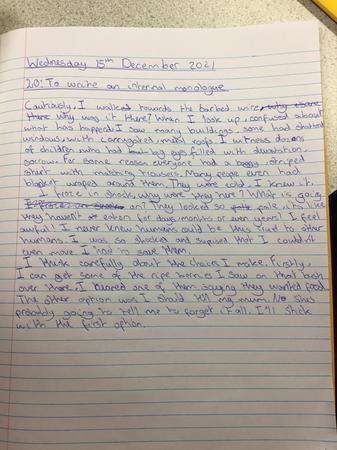 Wednesday 15th December 2021
LO: To write an internal monologue
Cautiously, I walked towards the barbed wire, why
there why was it there? When I look up, confused about
what has happend, I saw many buildings, some had shattered
windows, with corrugated, metal roofs. I witness dozens
of children, who had big eyes filled with
sorrow. For some reason everyone had a baggy, striped
shirt with matching trousers. Many people even had
blanket wraped around them. They were cold, I knew it.
I froze in shock, why were they here? What is going
on? They looked so pale, it's like
they haven't eaten for days, months or even years! I feel
awful! I never knew humans could be this cruel to other
humans. I was so shocked and suprised that I could'nt
even move. I had to save them.
I think carefully about the choices I make. Firstly,
I can get some of the ripe berries I saw on that bush
over there, I heared one of them saying they wanted food.
The other option was I should tell my mum. No shes
probably going to tell me to forget it all. I'll stick
with the first option.